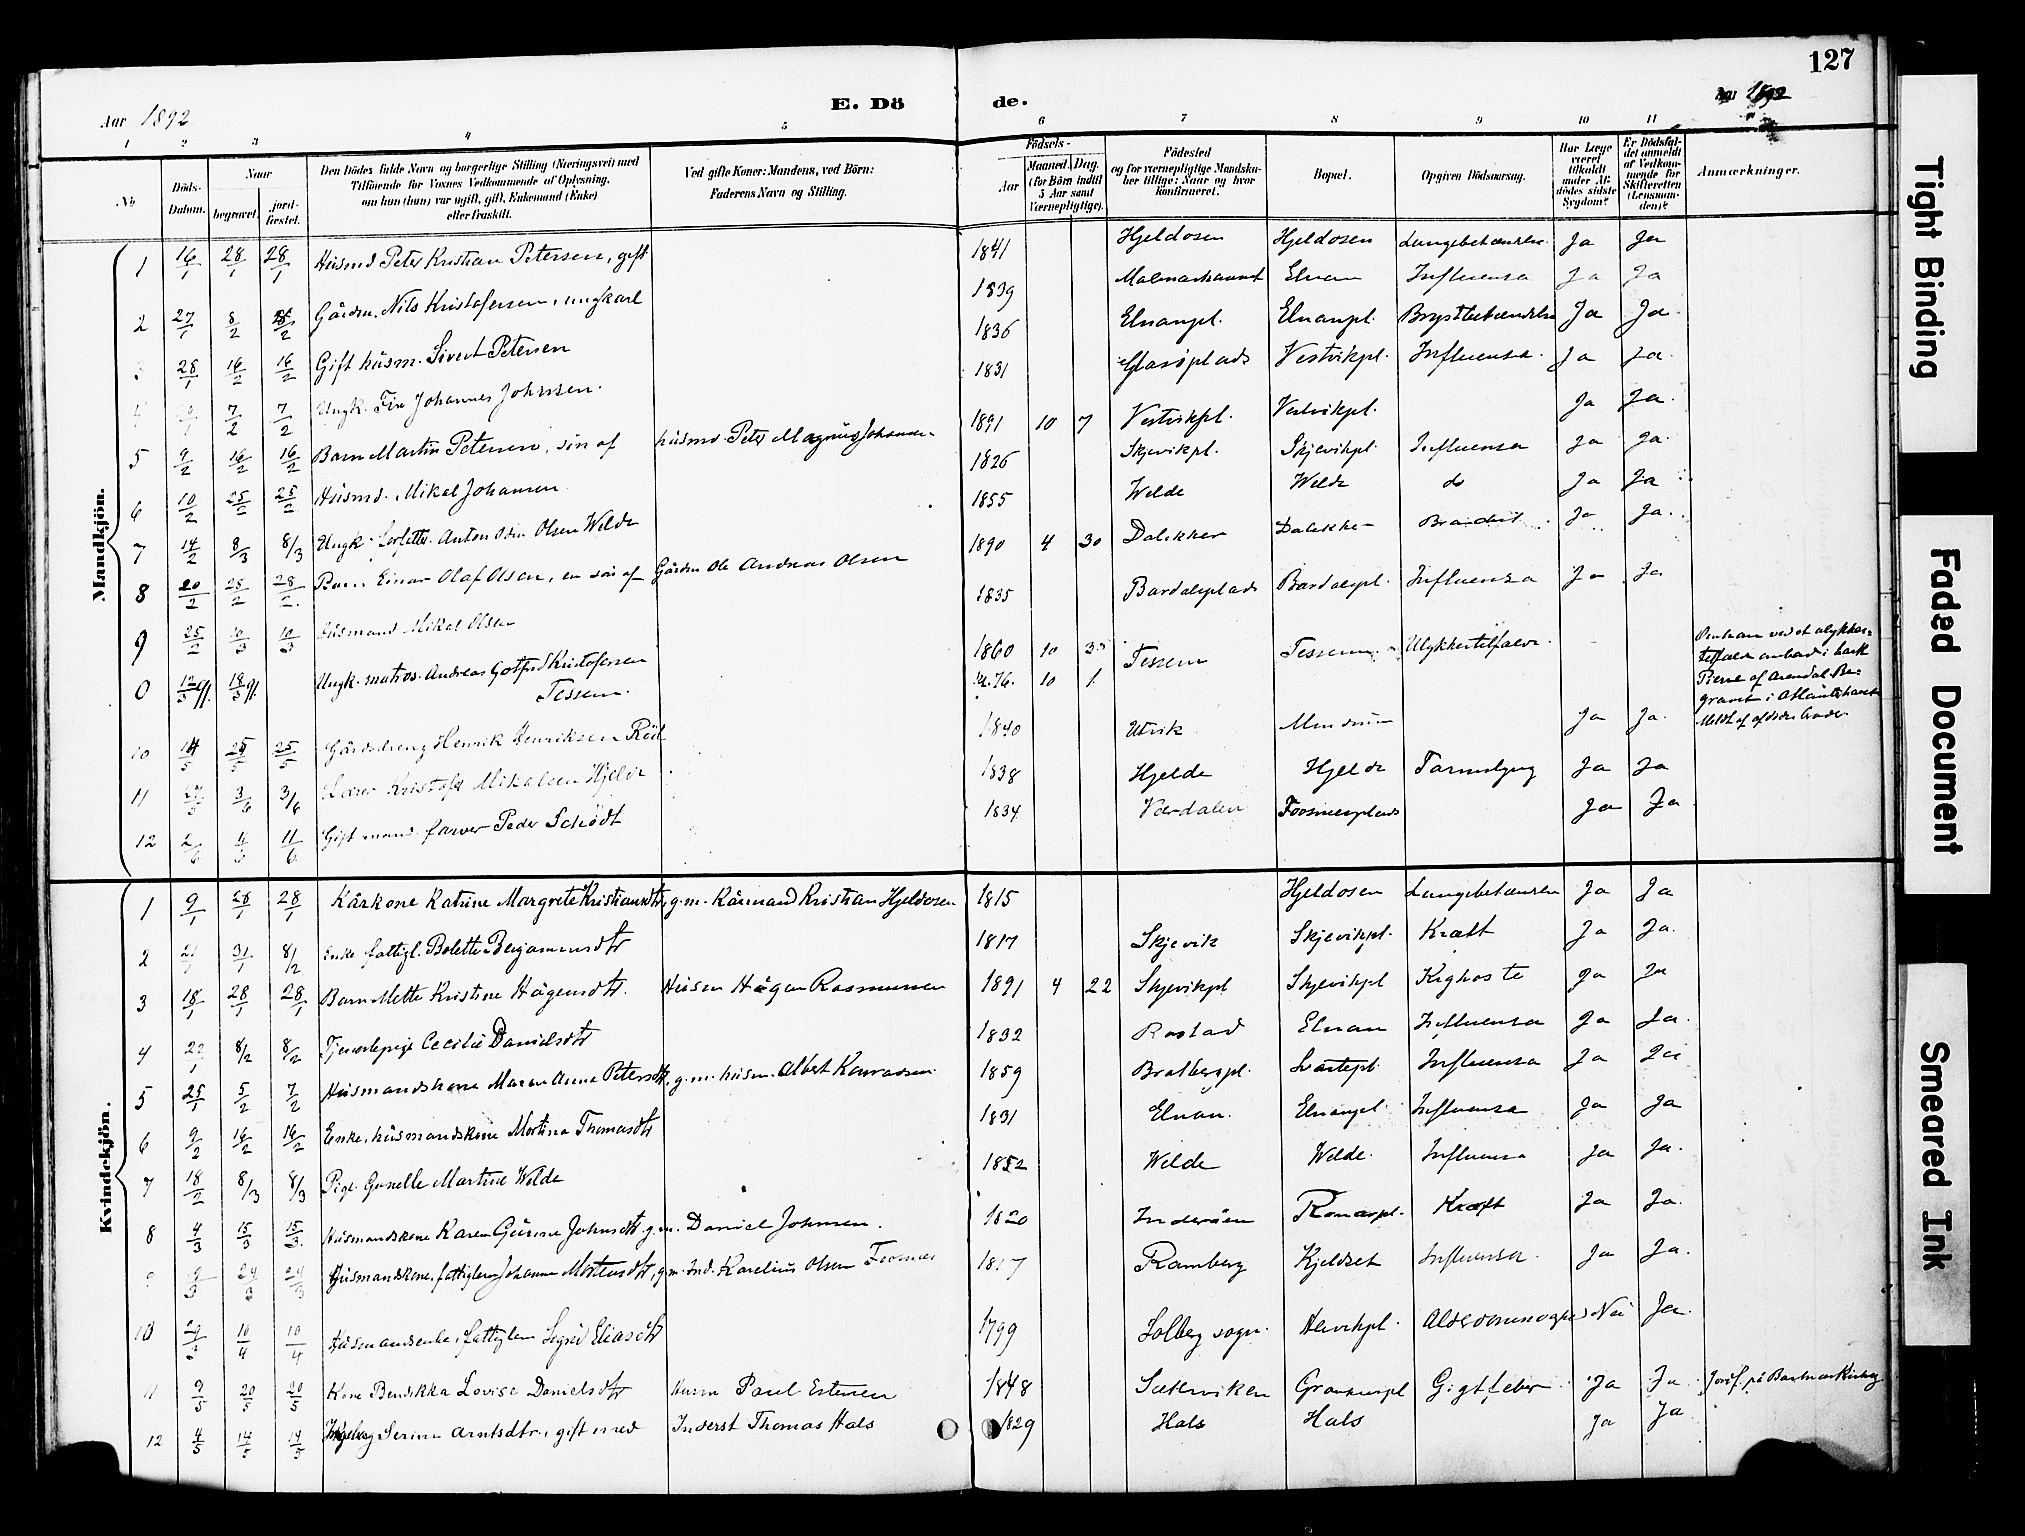 127
Aar 1892
E. Dö de.
Aar 1892
1 2 3 4 5 6 7 8 9 10 11
No
Döds-Datum.
Naar
begravet. jord-fæstet.
Den Dödes fulde Navn og borgerlige Stilling (Næringsvei) med
Tilföiende for Voxnes Vedkommende af Oplysning,
om han (hun) var ugift, gift, Enkemand (Enke)
eller fraskilt.
Ved gifte Koner: Mandens, ved Börn:
Faderens Navn og Stilling.
Födsels-
Aar Maaned. Dag.
(for Börn indtil
5 Aar samt
Værnepligtige).
Födested
og for værnepligtige Mandsku-
ber tillige: Naar og hvor
konfirmeret.
Bopæl.
Opgiven Dödsaarsag.
Har Læge
været
tilkaldt
under Af-
dödes sidste
Sygdom?
Er Dödsfal-
det anmeldt
af Vedkom-
mende for
Skifteretten
(Lensman-
den)?
Anmærkninger.
Mandkjön.
1 16/1 28/1 28/1 Husmd Peter Kristian Petersen, gift 1841 Hjeldosen Hjeldosen Lungebetændelse Ja Ja
2 27/1 8/2 Gårdm. Nils Kristofersen, ungkarl 1839 Elnan Influensa Ja Ja
3 28/1 16/2 16/2 Gift husm. Sivert Petersen 1836 Elnanpl. Elnanpl. Brystbetændelse Ja Ja
4 7/2 7/2 Ungk. Johannes Johnsen. 1831 Vestvikpl. Influensa. Ja Ja.
5 9/2 16/2 16/2 Barn Martin Petersen, sön af husmd. Peter Magnus Johansen 1891 10 7 Vestvikpl. Vestvikpl. Ja Ja.
6 10/2 25/2 25/2 Husmd. Mikal Johansen 1826 Skjevikpl. Skjevikpl. Influensa Ja Ja.
7 14/2 8/3 8/3 Ungk. Anton Odin Olsen Welde 1855 Welde Welde do Ja Ja
8 20/2 28/2 28/2 Barn Einar Olaf Olsen, en sön af Gårdm Ole Andreas Olsen 1890 4 30 Dalekker Dalekker Ja Ja.
9 25/2 10/3 10/3 Husmand Mikal Olsen 1835 Bardalsplads Bardalspl. Influensa Ja Ja
0 12/3 91. 18/3 91. Ungk. matros. Andreas Gotfred Kristofersen
Tessem. 1860 10 Tessem Tessem Ulykkestilfælde
Omkom ved et ulykkes-
tilfælde ombord i bark
af Arendal. Be-
gravet i Atlanterhavet
10 14/5 25/5 25/5 Gårddreng Henrik Henriksen 1840 Utvik Ja Ja.
11 27/5 3/6 3/6 Lærer Kristofer Mikalsen Hjelde 1838 Hjelde Hjelde Ja Ja
12 11/6 Gift mand, farver Peder Schödt 1834 Værdalen Fosnesplads Ja Ja
Kvindekjön.
1 9/1 28/1 28/1 Kårkone Katrine Margrete Kristiansdtr, g.m. Kårmand Kristian Hjeldosen 1815 Hjeldosen Lungebetændelse Ja Ja
2 21/1 31/1 8/2 Enke fattigl. Bolette Benjaminsdtr 1817 Skjevik Skjevikpl. Kræft Ja Ja.
3 18/1 28/1 28/1 Barn Mette Kristine Hågensdtr. Husm Hågen Rasmussen 1891 4 22 Skjevikpl Skjevikpl Kighoste Ja Ja
4 22/1 8/2 8/2 Tjenestepige Cecilie Danielsdtr 1832 Rostad Elnan Influensa Ja Ja.
5 25/1 5/2 7/2 Husmandskone Maren Anna Petersdtr, g.m. husm. Albert Konradsen 1859 Bratbergpl. Influensa Ja Ja
6 9/2 16/2 16/2 Enke, husmandskone Mortina Thomasdtr 1831 Elnan. Elnanpl. Influensa Ja Ja
7 18/2 8/3 8/3 Pige Gunelle Martine Welde 1852 Welde Welde. Influensa Ja Ja.
8 4/3 15/3 15/3 Husmandskone Karen Gurine Johnsdtr g.m. Daniel Johnsen. 1820 Inderöen Kræft Ja Ja.
9 9/3 24/3 24/3 Husmandskone, fattiglem Johanna Mortensdtr, g.m. Ind. Karelius Olsen Fosnes 1817 Ramberg Kjeldset Influensa. Ja Ja.
10 10/4 10/4 Husmandsenke, fattiglem Sigrid Eliasdtr 1799 Solberg sogn. Nei Ja.
11 9/5 20/5 20/5 Kone Bendikka Lovise Danielsdtr Husm Paul Estensen 1848 Gigtfeber Ja Ja
12 4/5 14/5 14/5 Ingeborg Serine Arntsdtr, gift med Inderst Thomas Hals 1829 Hals Hals Ja Ja
Tight Binding
Faded Document
Smeared Ink